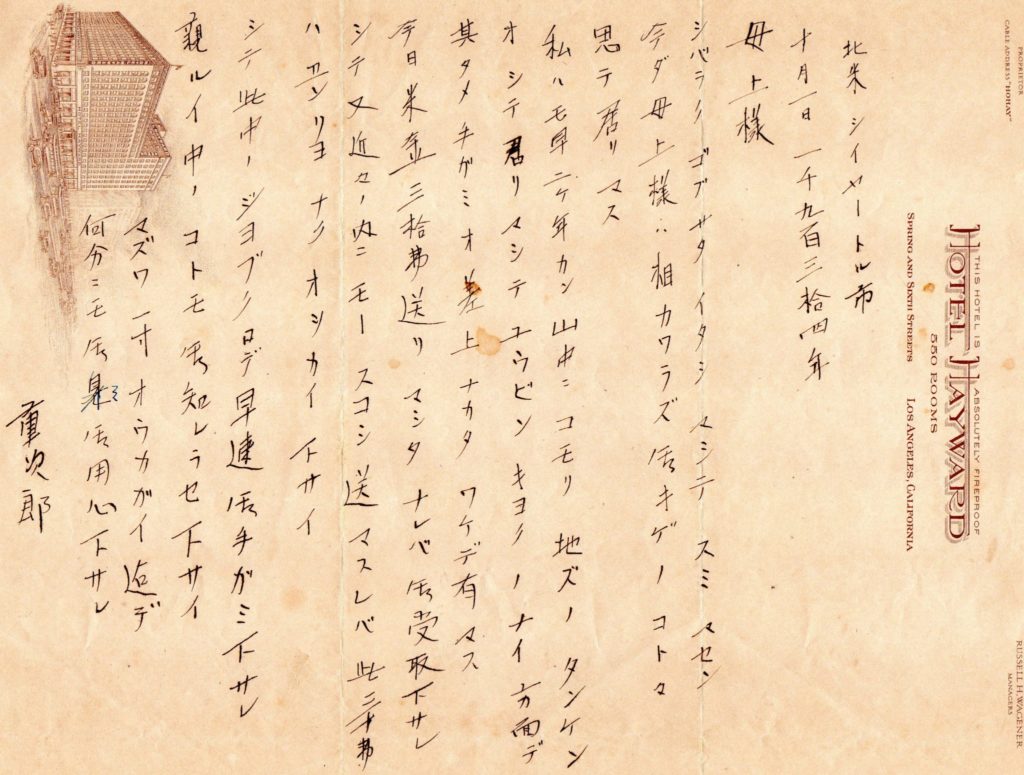 PROPRIETOR
CABLE ADDRESS "HOHAY"
THIS HOTEL IS ABSOLUTELY FIREPROOF
HOTEL HAYWARD
550 ROOMS
SPRING AND SIXTH STREETS LOS ANGELES, CALIFORNIA
RUSSELL H. WAGENER
MANAGERS
北米シイヤートル市
十月一日 一千九百三拾四年
母上様
シバラクゴブサタイタシマシテスミマセン
今ダ母上様ハ相カワラズ御キゲノコトヽ
思テ居リマス
私ハモ早二ケ年カン山中ニコモリ地ズノタンケン
オシテ居リマシテユウビンキヨクノナイ方面デ
其タメ手ガミオ差上ナカタワケデ有マス
今日米金三拾弗送リマシタナレバ御受取下サレ
シテ又近々ノ内ニモースコシ送マスレバ此三十弗
ハヱンリヨナクオシカイ下サイ
シテ此中ノジヨブクロデ早速御手ガミ下サレ
親ルイ中ノコトモ御知レラセ下サイ
マズワ一寸オウカガイ迄デ
何分ニモ御身御用心下サレ
重次郎